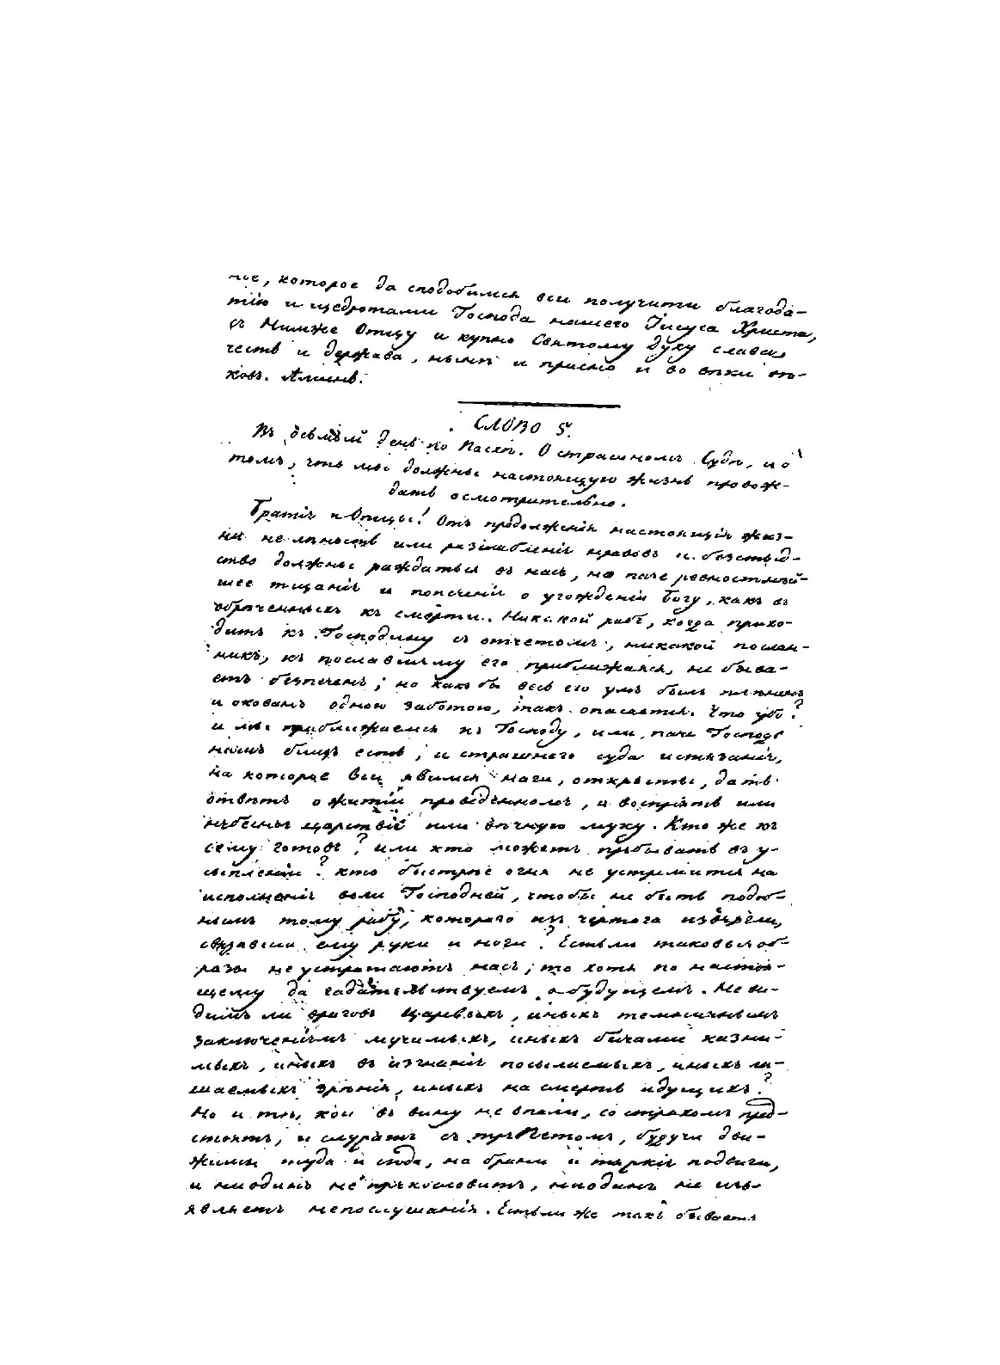 ніе, которое да сподобимся вси получити благода-
тію и щедротами Господа нашего Іисуса Христа,
съ Нимже Отцу и купно Святому Духу слава,
честь и держава, нынѣ и присно и во вѣки вѣ-
ковъ. Аминь.
СЛОВО 5.
Въ осьмый день по Пасхѣ. О страшномъ Судѣ, и о
томъ, что мы должны настоящую жизнь провож-
дать осмотрительно.
Братія и Отцы! Отъ продолженія настоящія жиз-
ни не лѣность или разслабленіе нравовъ и безстыд-
ство должны раждаться въ насъ, но паче ревностнѣй-
шее тщаніе и попеченіе о угожденіи Богу, какъ въ
обреченныхъ къ смерти. Никакой рабъ, когда прихо-
дитъ къ Господину съ отчетомъ, никакой послан-
никъ, къ пославшему его приближаясь, не быва-
етъ безпеченъ; но какъ бы весь его умъ былъ плѣненъ
и окованъ одною заботою, такъ опасается. Что убо?
и мы приближаемся къ Господу, или паче Господь
намъ близъ есть; и страшнаго суда истязаніе,
на которое вси явимся наги, откръсты, дать
отвѣтъ о житіи проведенномъ, и воспріять или
небесное царствіе или вѣчную муку. Кто же къ
сему готовъ? или кто можетъ пребывать въ у-
сыпленіи? кто быстрѣе огня не устремится на
исполненіе воли Господней, чтобы не быть подоб-
нымъ тому рабу, котораго изъ чертога извергли,
связавши ему руки и ноги? Естьли таковыя об-
разы не устрашаютъ насъ; то хотя по настоя-
щему да гадательствуемъ о будущемъ. Не ви-
димъ ли враговъ Царевыхъ, иныхъ темничнымъ
заключеніемъ мучимыхъ, иныхъ бичами казни-
мыхъ, иныхъ въ изгнаніе посылаемыхъ, иныхъ ли-
шаемыхъ зрѣнія, иныхъ на смерть идущихъ?
Но и тѣ, кои въ вину не впали, со страхомъ пред-
стоятъ, и служатъ съ трепетомъ, будучи дви-
жимы туда и сюда, на брани и тяжкіе подвиги,
и ниодинъ не прекословитъ, ниодинъ не изъ-
являетъ непослушанія. Естьли же такъ бываетъ